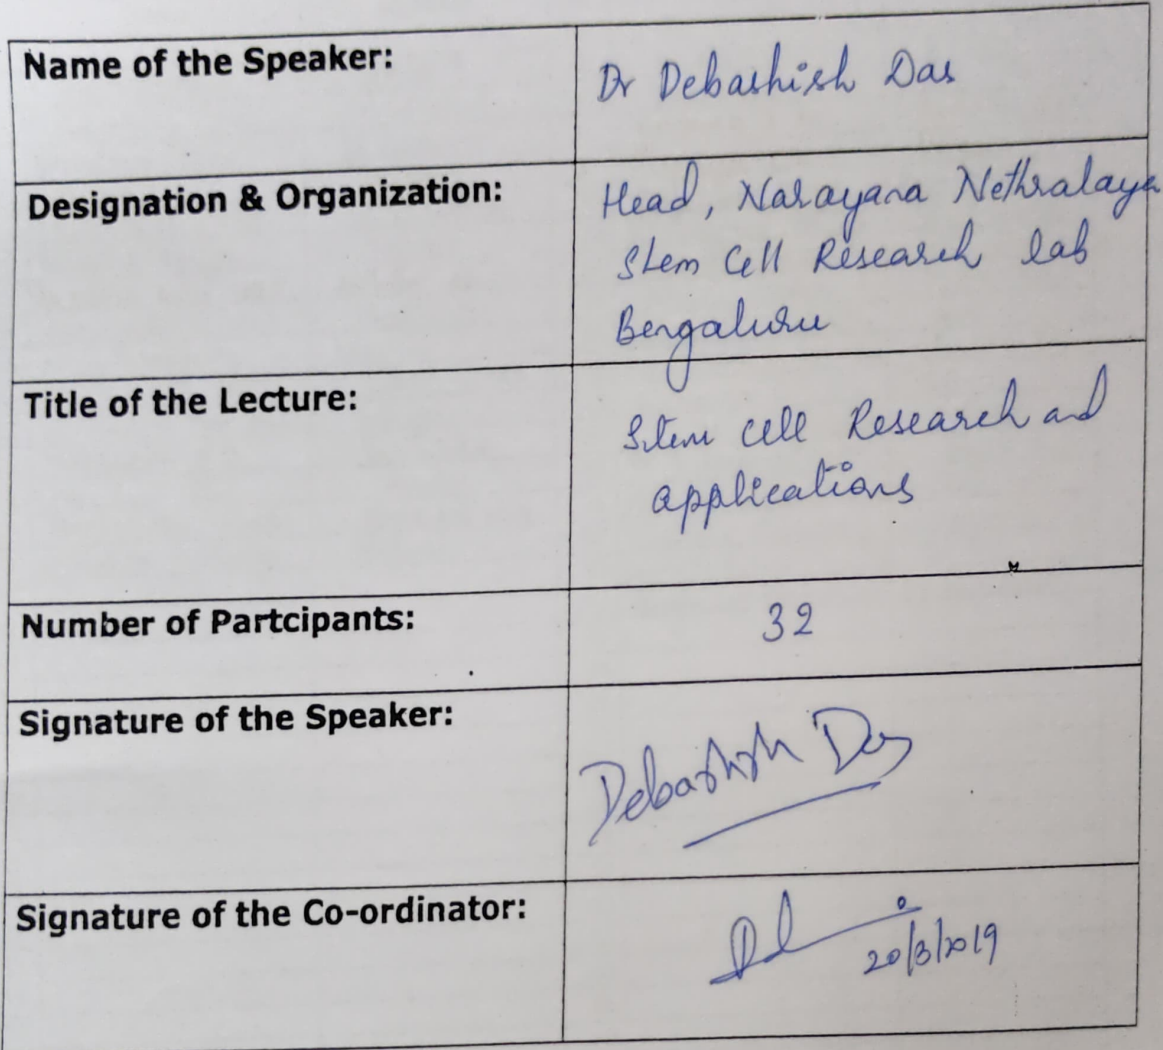 Name of the Speaker:
Dr Debashish Das
Designation & Organization:
Head, Narayana Nethralaya
Stem Cell Research lab
Bengaluru
Title of the Lecture:
Stem cell Research and
applications
Number of Partcipants:
32
Signature of the Speaker:
Debashish Das
Signature of the Co-ordinator:
20/3/2019